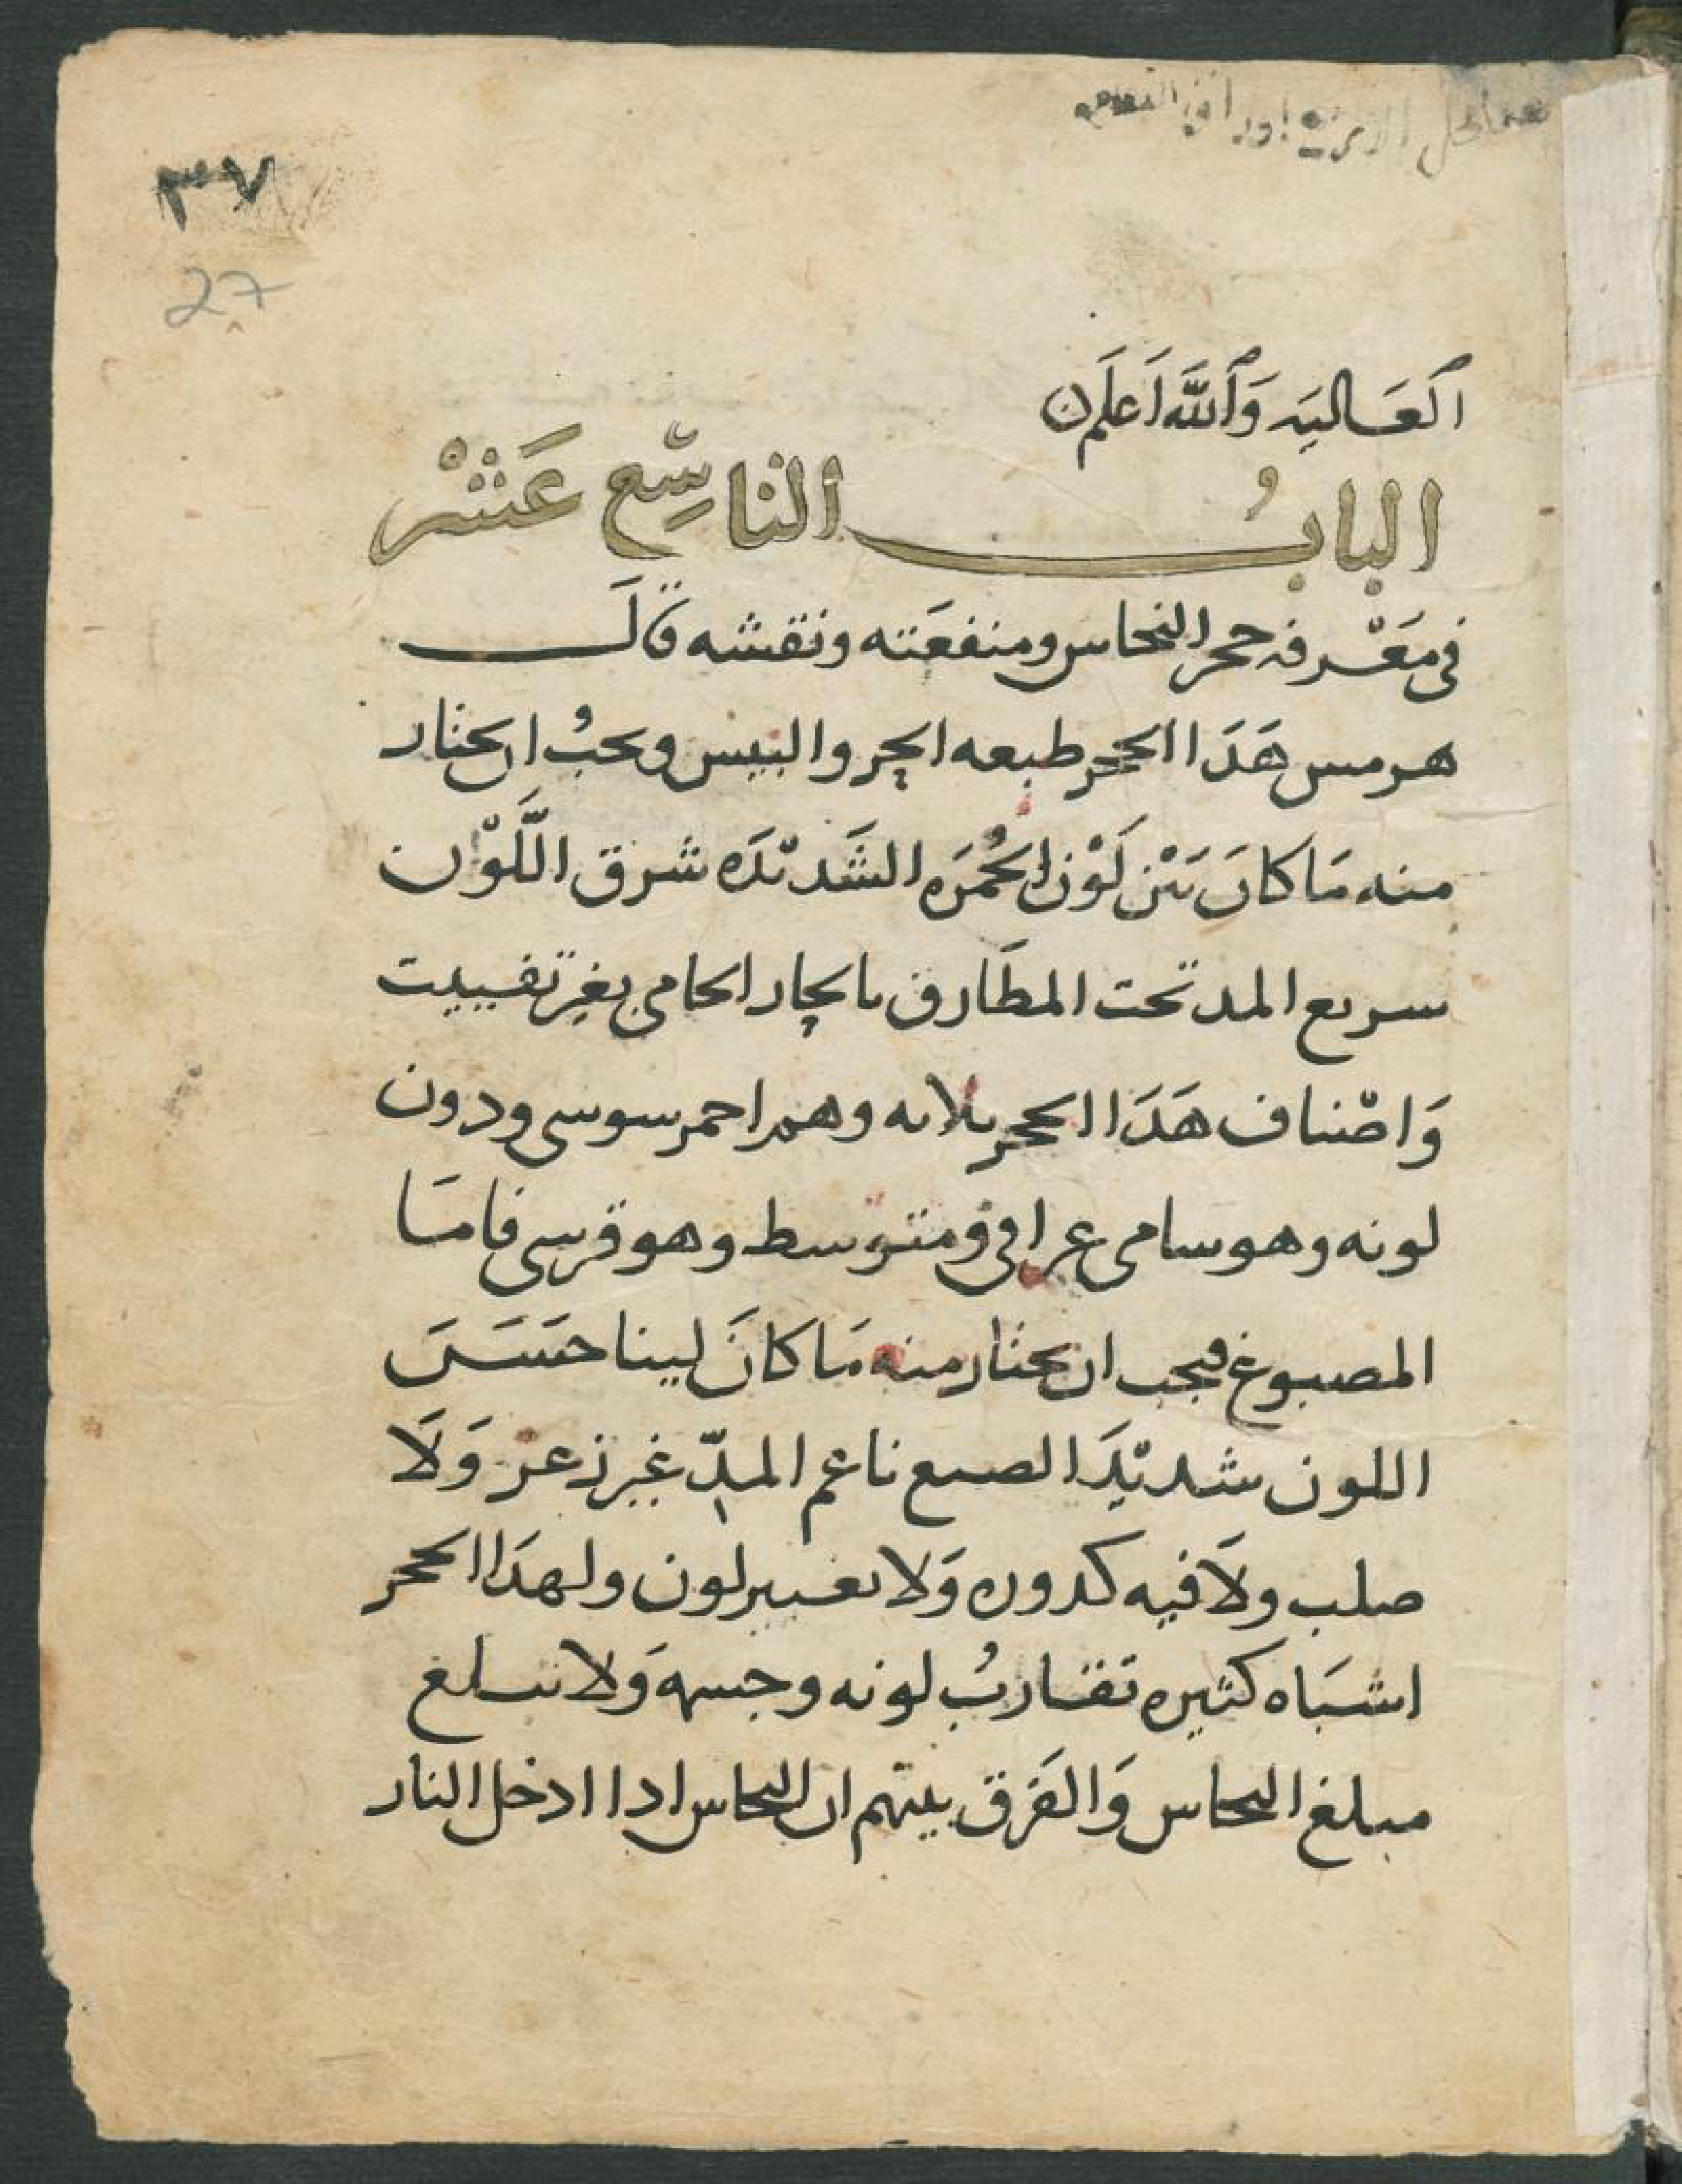 ٣٧
27
العَاليَه وَاللَّه اَعلَم
البابُ التاسِّع عَشْر
فى مَعْرفه حجر النحاس ومنفعَته ونقشه قالَ
هرمس هَذَا الحجر طبعه الحر واليبس ويحبُ ان يختار
منه مَا كانَ بَيْن لَوْن الحُمرَه الشَديْدَه شرق اللَّوْن
سريع المد تحت المطَارق بالحار الحامى بغير تفييت
وَاصْناف هَذَا الحجر ثلاثه وهم احمر سوسى ودون
لونه وهو سامى عراقى ومتوسط وهو قرسى فامَا
المصبوغ فيجب ان يختار منه مَا كانَ لينا حَسَنَ
اللون شديْدَ الصبغ ناعم المدّ غير زعر وَلَا
صلب ولَا فيه كدوره وَلا تغيير لون ولهذَا الحجر
اشبَاه كثيره تقاربُ لونه وجسمه وَلا تبلغ
مبلغ النحاس وَالفَرق بينهم ان النحاس اذا ادخل النار